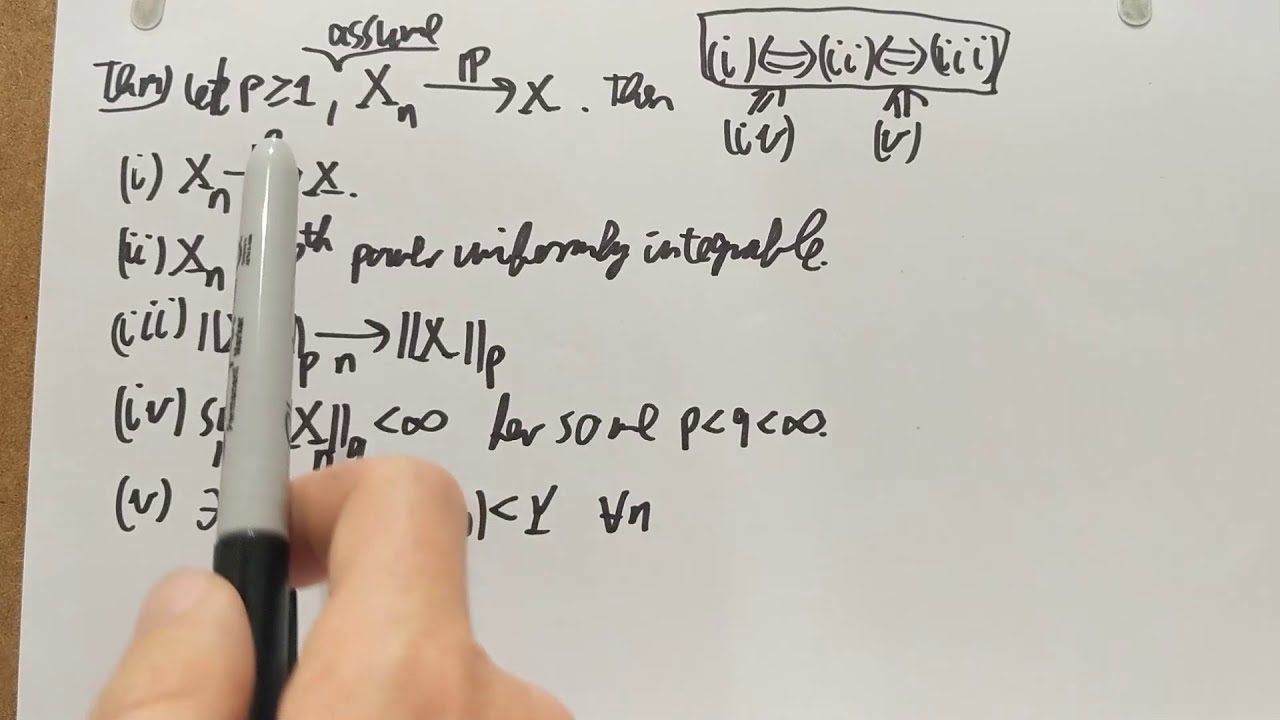 Thm) let p≥1, X_n →^ℙ X. Then (i)⇔(ii)⇔(iii)
assume
⇑ (iv) ⇑ (v)
(i) X_n → X.
(ii) X_n th power uniformly integrable.
(iii) || ||_p →_n ||X||_p
(iv) X_n||_q <∞ for some p<q<∞.
(v) ∃ |<Y ∀n